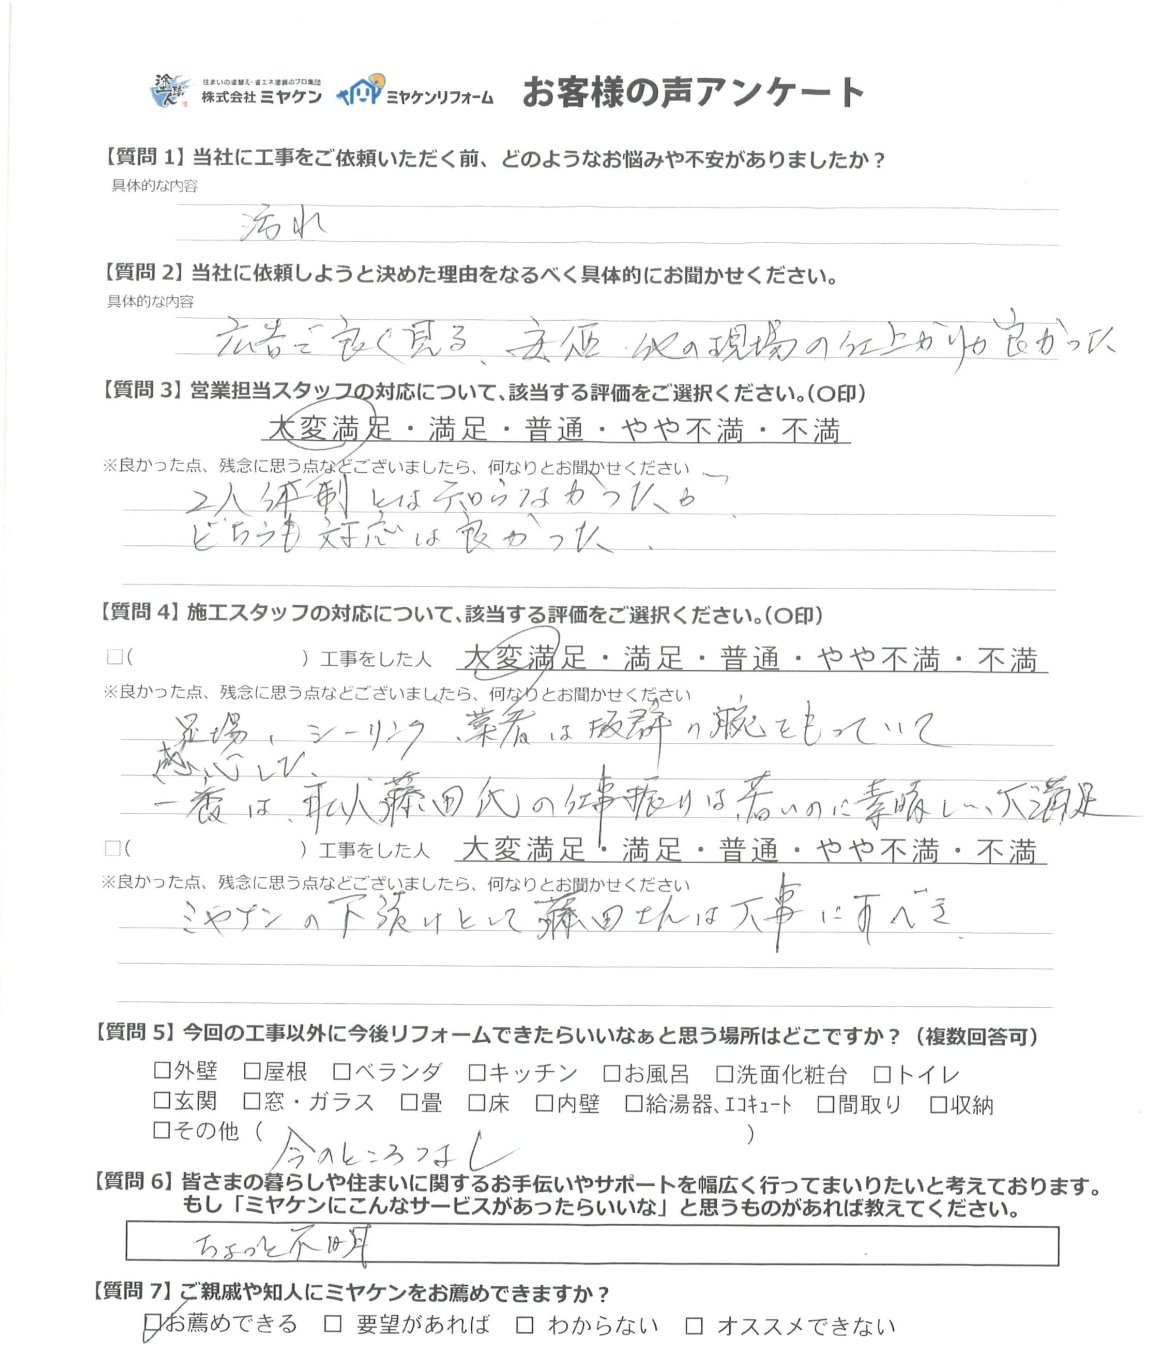 塗職人 住まいの塗替え・省エネ塗装のプロ集団 株式会社ミヤケン ミヤケンリフォーム お客様の声アンケート
【質問1】当社に工事をご依頼いただく前、どのようなお悩みや不安がありましたか？
具体的な内容
汚れ
【質問2】当社に依頼しようと決めた理由をなるべく具体的にお聞かせください。
具体的な内容
広告で良く見る、安価 他の現場の仕上がりが良かった
【質問3】営業担当スタッフの対応について、該当する評価をご選択ください。（〇印）
大変満足・満足・普通・やや不満・不満
※良かった点、残念に思う点などございましたら、何なりとお聞かせください
2人体制とは知らなかったが、
どちらも対応は良かった。
【質問4】施工スタッフの対応について、該当する評価をご選択ください。（〇印）
□（ ）工事をした人 大変満足・満足・普通・やや不満・不満
※良かった点、残念に思う点などございましたら、何なりとお聞かせください
足場、シーリング 業者は抜群の腕をもっていて
感心した、
一番は、職人藤田氏の仕事振りは若いのに素晴しい、大満足
□（ ）工事をした人 大変満足・満足・普通・やや不満・不満
※良かった点、残念に思う点などございましたら、何なりとお聞かせください
ミヤケンの下請けとして藤田さんは大事にすべき.
【質問5】今回の工事以外に今後リフォームできたらいいなぁと思う場所はどこですか？（複数回答可）
□外壁 □屋根 □ベランダ □キッチン □お風呂 □洗面化粧台 □トイレ
□玄関 □窓・ガラス □畳 □床 □内壁 □給湯器、ｴｺｷｭｰﾄ □間取り □収納
□その他（ ）
今のところなし
【質問6】皆さまの暮らしや住まいに関するお手伝いやサポートを幅広く行ってまいりたいと考えております。
もし「ミヤケンにこんなサービスがあったらいいな」と思うものがあれば教えてください。
ちょっと不明
【質問7】ご親戚や知人にミヤケンをお薦めできますか？
☑お薦めできる □ 要望があれば □ わからない □ オススメできない